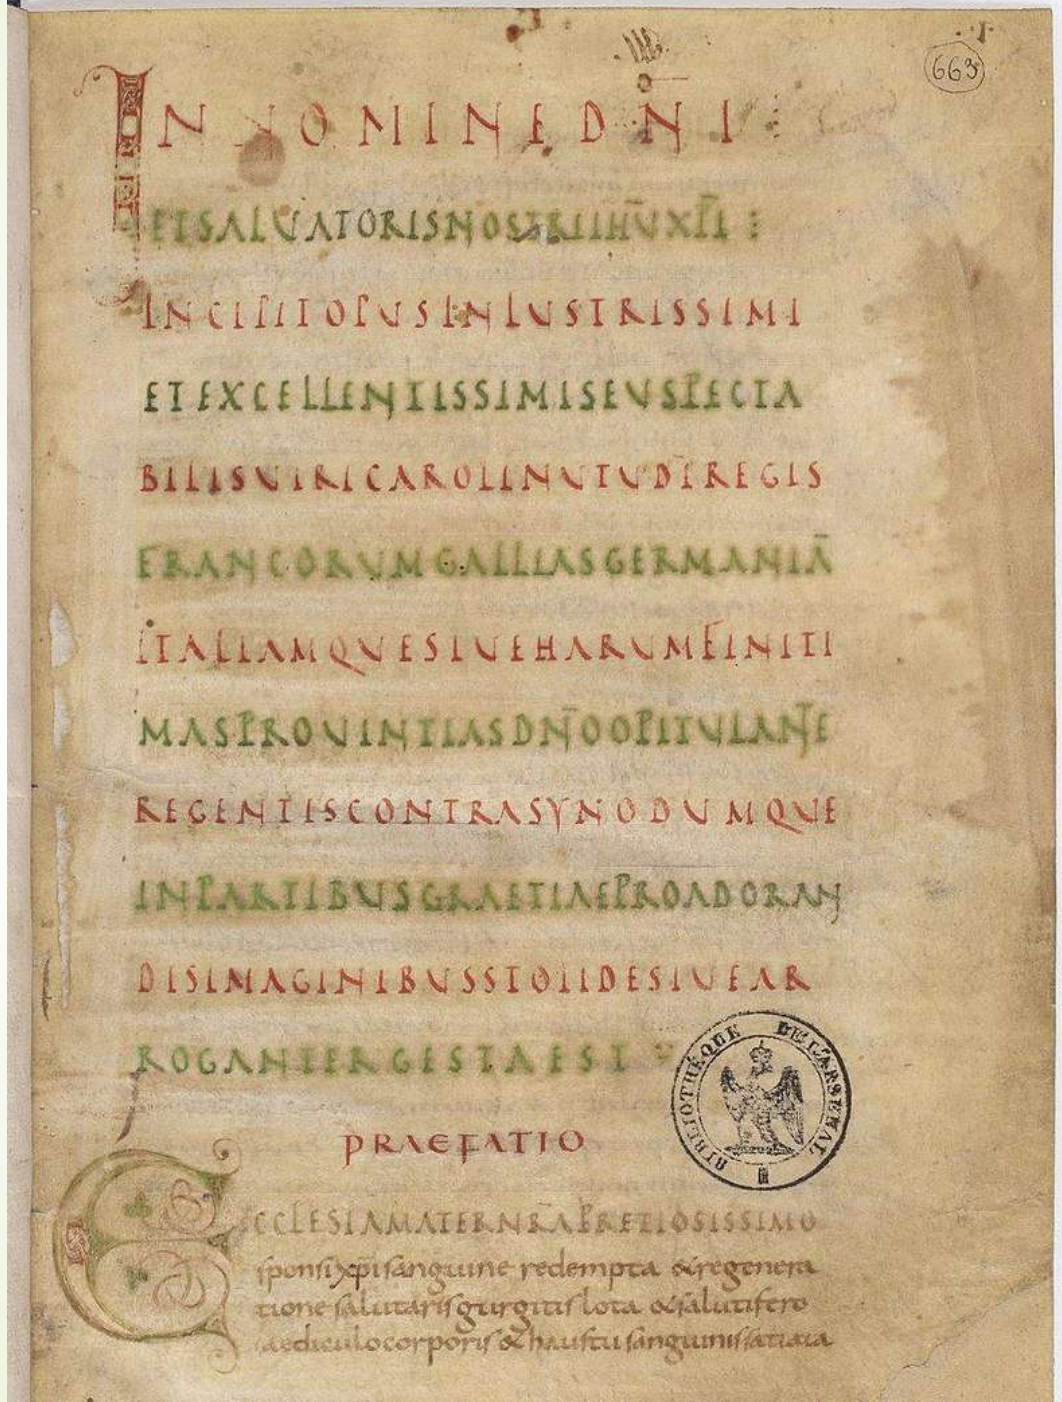 663
IN NOMINE DÑI
ETSALVATORISNOSTRIIHŪXPI
INCIPITOPUSINLUSTRISSIMI
ETEXCELLENTISSIMISEUSPECTA
BILISUIRICAROLINUTUDĪREGIS
FRANCORUMGALLIASGERMANIĀ
ITALIAMQUESIUEHARUMFINITI
MASPROUINTIASDÑOOPITULANTE
REGENTISCONTRASYNODUMQUE
INPARTIBUSGRAETIAEPROADORAN
DISIMAGINIBUSSTOLIDESIUEAR
ROGANTERGESTAEST
PRAEFATIO
ECCLESIAMATERNRĀPRETIOSISSIMO
sponsi xp̄i sanguine redempta & regenera
tione salutaris gurgitis lota & salutifero
aediculo corporis & haustu sanguinis satiata
BIBLIOTHÈQUE DE L'ARSENAL